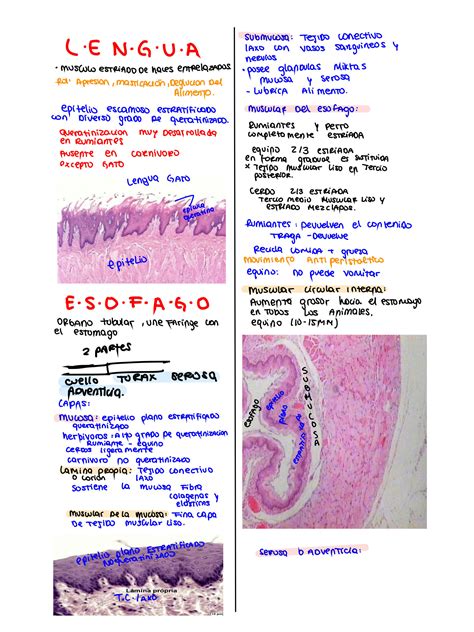 L·E·N·G·U·A
· MUSCULO ESTRIADO DE HACES ENTRELAZADOS
Rol: Apresion, MASTICACIÓN, DEGLUCION DEL
Alimento.
Epitelio escamoso ESTRATIFICADO
con Diverso grado de queratinizado.
Queratinización muy desarrollada
en Rumiantes
Ausente en carnivoro
excepto GATO
Lengua GATO
epitelio
queratino
epitelio
E·S·O·F·A·G·O
ORGANO tubular, une faringe con
el estomago
2 PARTES
cuello TORAX SEROSA
Adventicia.
CAPAS:
Mucosa: epitelio plano estratificado
queratinizado
herbivoros: Alto grado de queratinización
Rumiante - equino
Cerdos ligeramente
carnivoro no queratinizado
Lamina propia: Tejido conectivo
o corion laxo
Sostiene la mucosa Fibra
colagenas y
elasticas
Muscular de la mucosa: Fina capa
de Tejido muscular liso.
epitelio plano ESTRATIFICADO
No queratinizado
Lámina propia
T.C. laxo
Submucosa: Tejido conectivo
laxo con vasos sanguineos y
nervios
· posee glandulas Mixtas
Mucosa y Serosa
- Lubrica Alimento.
Muscular del esofago:
Rumiantes y perro
completamente estriada
equino 2/3 estriada
en forma gradual es sustituida
x Tejido muscular liso en Tercio
posterior.
Cerdo 2/3 estriada
Tercio medio muscular liso y
estriado mezclados.
Rumiantes: Devuelven el contenido
TRAGA - Devuelve
Recula comida + gruesa
movimiento antiperistoltico
equino: no puede vomitar
Muscular circular interna:
Aumenta grosor hacia el estomago
en todos los animales.
equino (10-15MM)
esofago
epitelio
plano
SUBMUCOSA
serosa o adventicia: